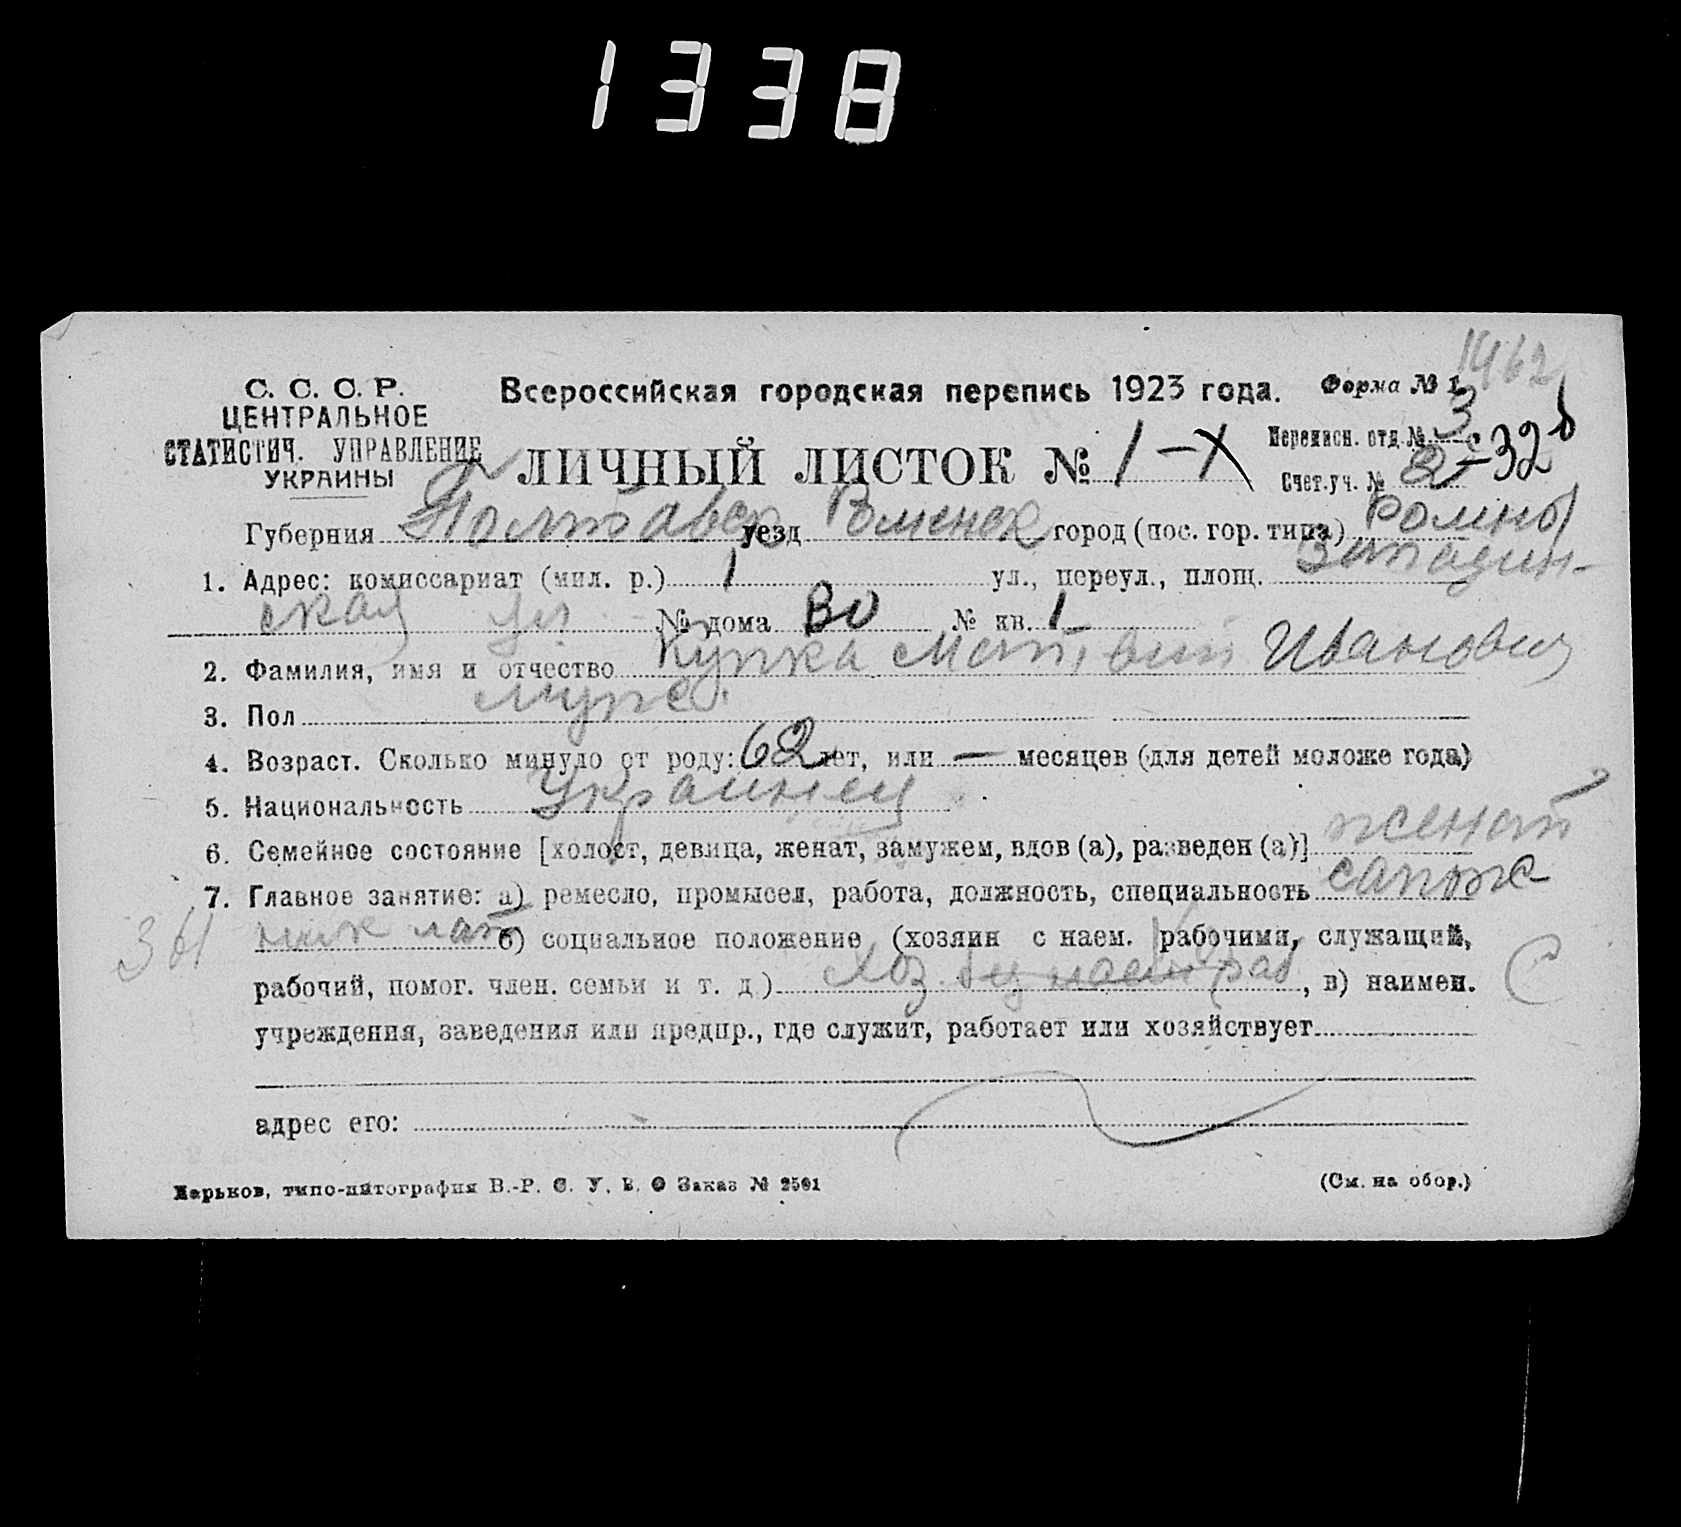 1338
1462
С. С. С. Р. Всероссийская городская перепись 1923 года. Форма № 1
ЦЕНТРАЛЬНОЕ
СТАТИСТИЧ. УПРАВЛЕНИЕ
УКРАИНЫ
ЛИЧНЫЙ ЛИСТОК № 1-X Переписн. отд. № 3
Счет.уч. № 2 -32
Губерния Полтавск уезд Роменск город (пос. гор. типа) Ромны
1. Адрес: комиссариат (мил. р.) 1 ул., переул., площ.
ская ул. № дома № кв. 1
2. Фамилия, имя и отчество Купка Матвий Иванович
3. Пол мужс.
4. Возраст. Сколько минуло от роду: 62 лет, или — месяцев (для детей моложе года)
5. Национальность Украинец
6. Семейное состояние [холост, девица, женат, замужем, вдов (а), разведен (а)] женат
7. Главное занятие: а) ремесло, промысел, работа, должность, специальность сапож
361 ник лат б) социальное положение (хозяин с наем. рабочими, служащий,
рабочий, помог. член. семьи и т. д.) хоз без наемн раб, в) наимен. С
учреждения, заведения или предпр., где служит, работает или хозяйствует
адрес его:
Харьков, типо-литография В.-Р. С. У. В. О Заказ № 2501 (См. на обор.)